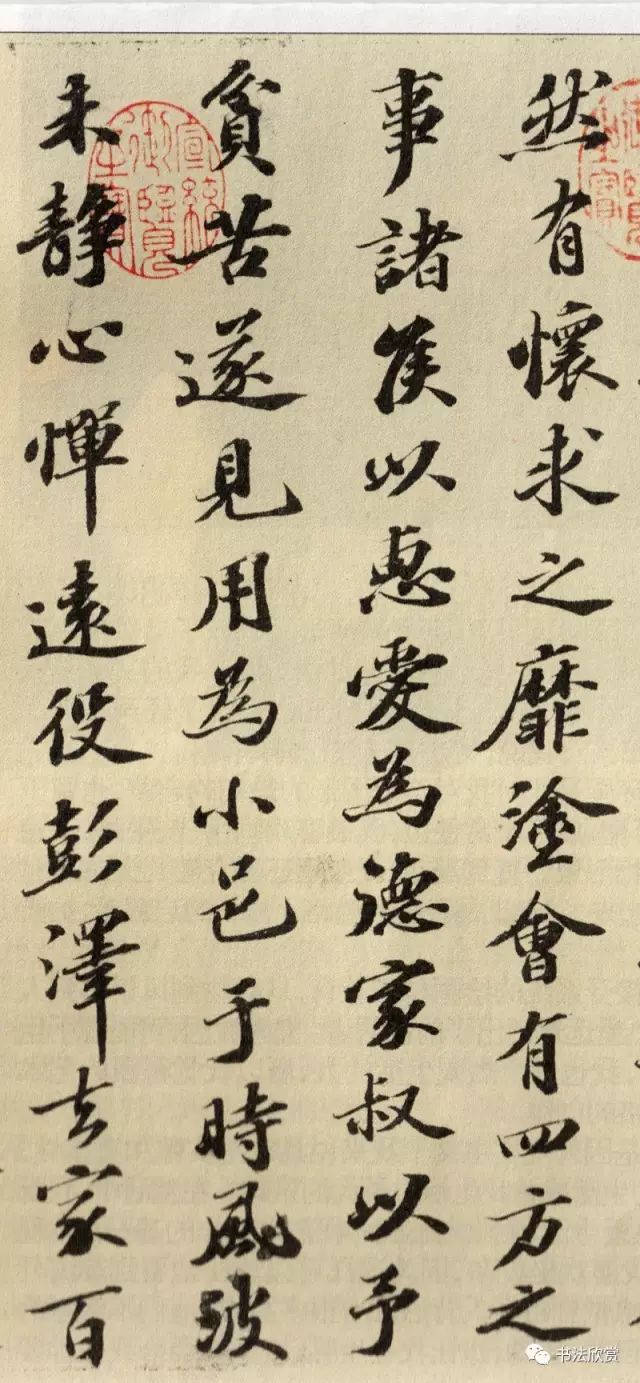 然有懷求之靡塗會有四方之
事諸侯以惠愛為德家叔以予
貧苦遂見用為小邑于時風波
未靜心憚遠役彭澤去家百
宣統御覽之寶
書法欣赏